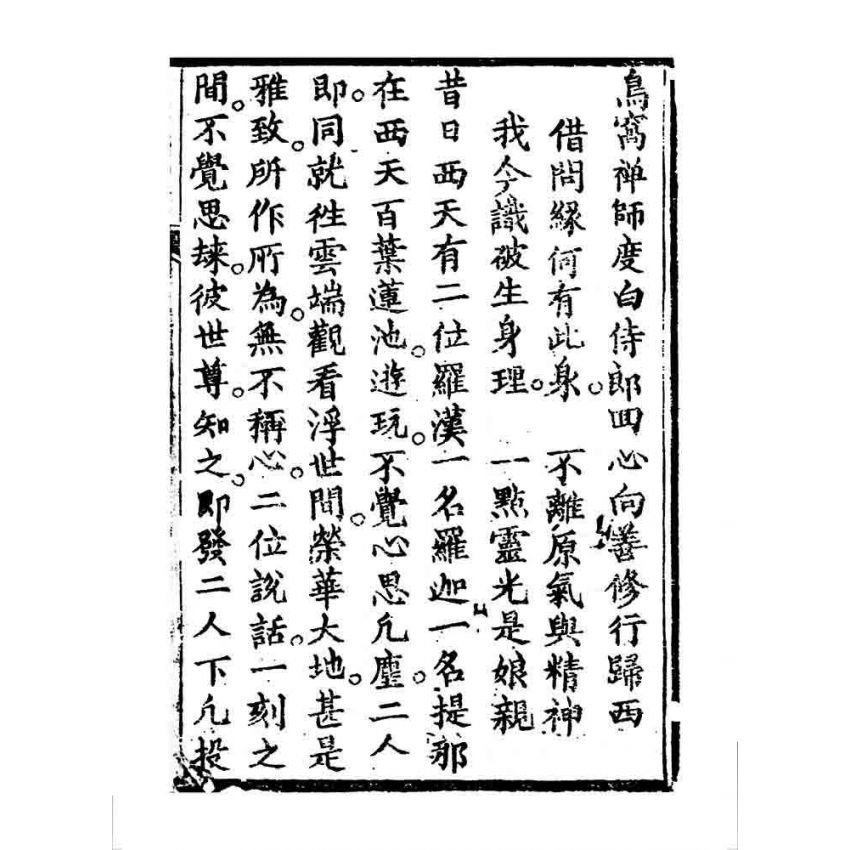 鳥窩禅師度白侍郎回心向善修行歸西
借問緣何有此身。 不離原氣與精神
我今識破生身理。 一點靈光是娘親
昔日西天有二位羅漢一名羅迦一名提那
在西天百葉蓮池。遊玩。不覺心思凢塵。二人
即。同就徃雲端觀看浮世間。榮華大地。甚是
雅致。所作所為。無不稱心。二位說話。一刻之
間。不覺思埭。彼世尊。知之。即發二人下凢投